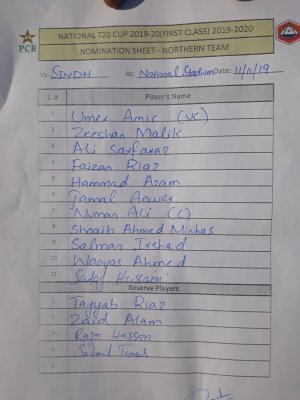 PCB
NATIONAL T20 CUP 2019-20(FIRST CLASS) 2019-2020
NOMINATION SHEET - NORTHERN TEAM
Vs. SINDH At: National Stadium Date: 11/11/19
S. # Player's Name
1 Umer Amic (VC)
2 Zeeshan Malik
3 Ali Sarfaraz
4 Faizan Riaz
5 Hammad Azam
6 Jamal Anwer
7 Numan Ali (C)
8 Shoaib Ahmed Minhas
9 Salman Irshad
10 Waqas Ahmed
11 Sadaf Hussain
Reserve Players
1 Tayyab Riaz
2 Zaid Alam
3 Raza Hassan
4 Sohail
5